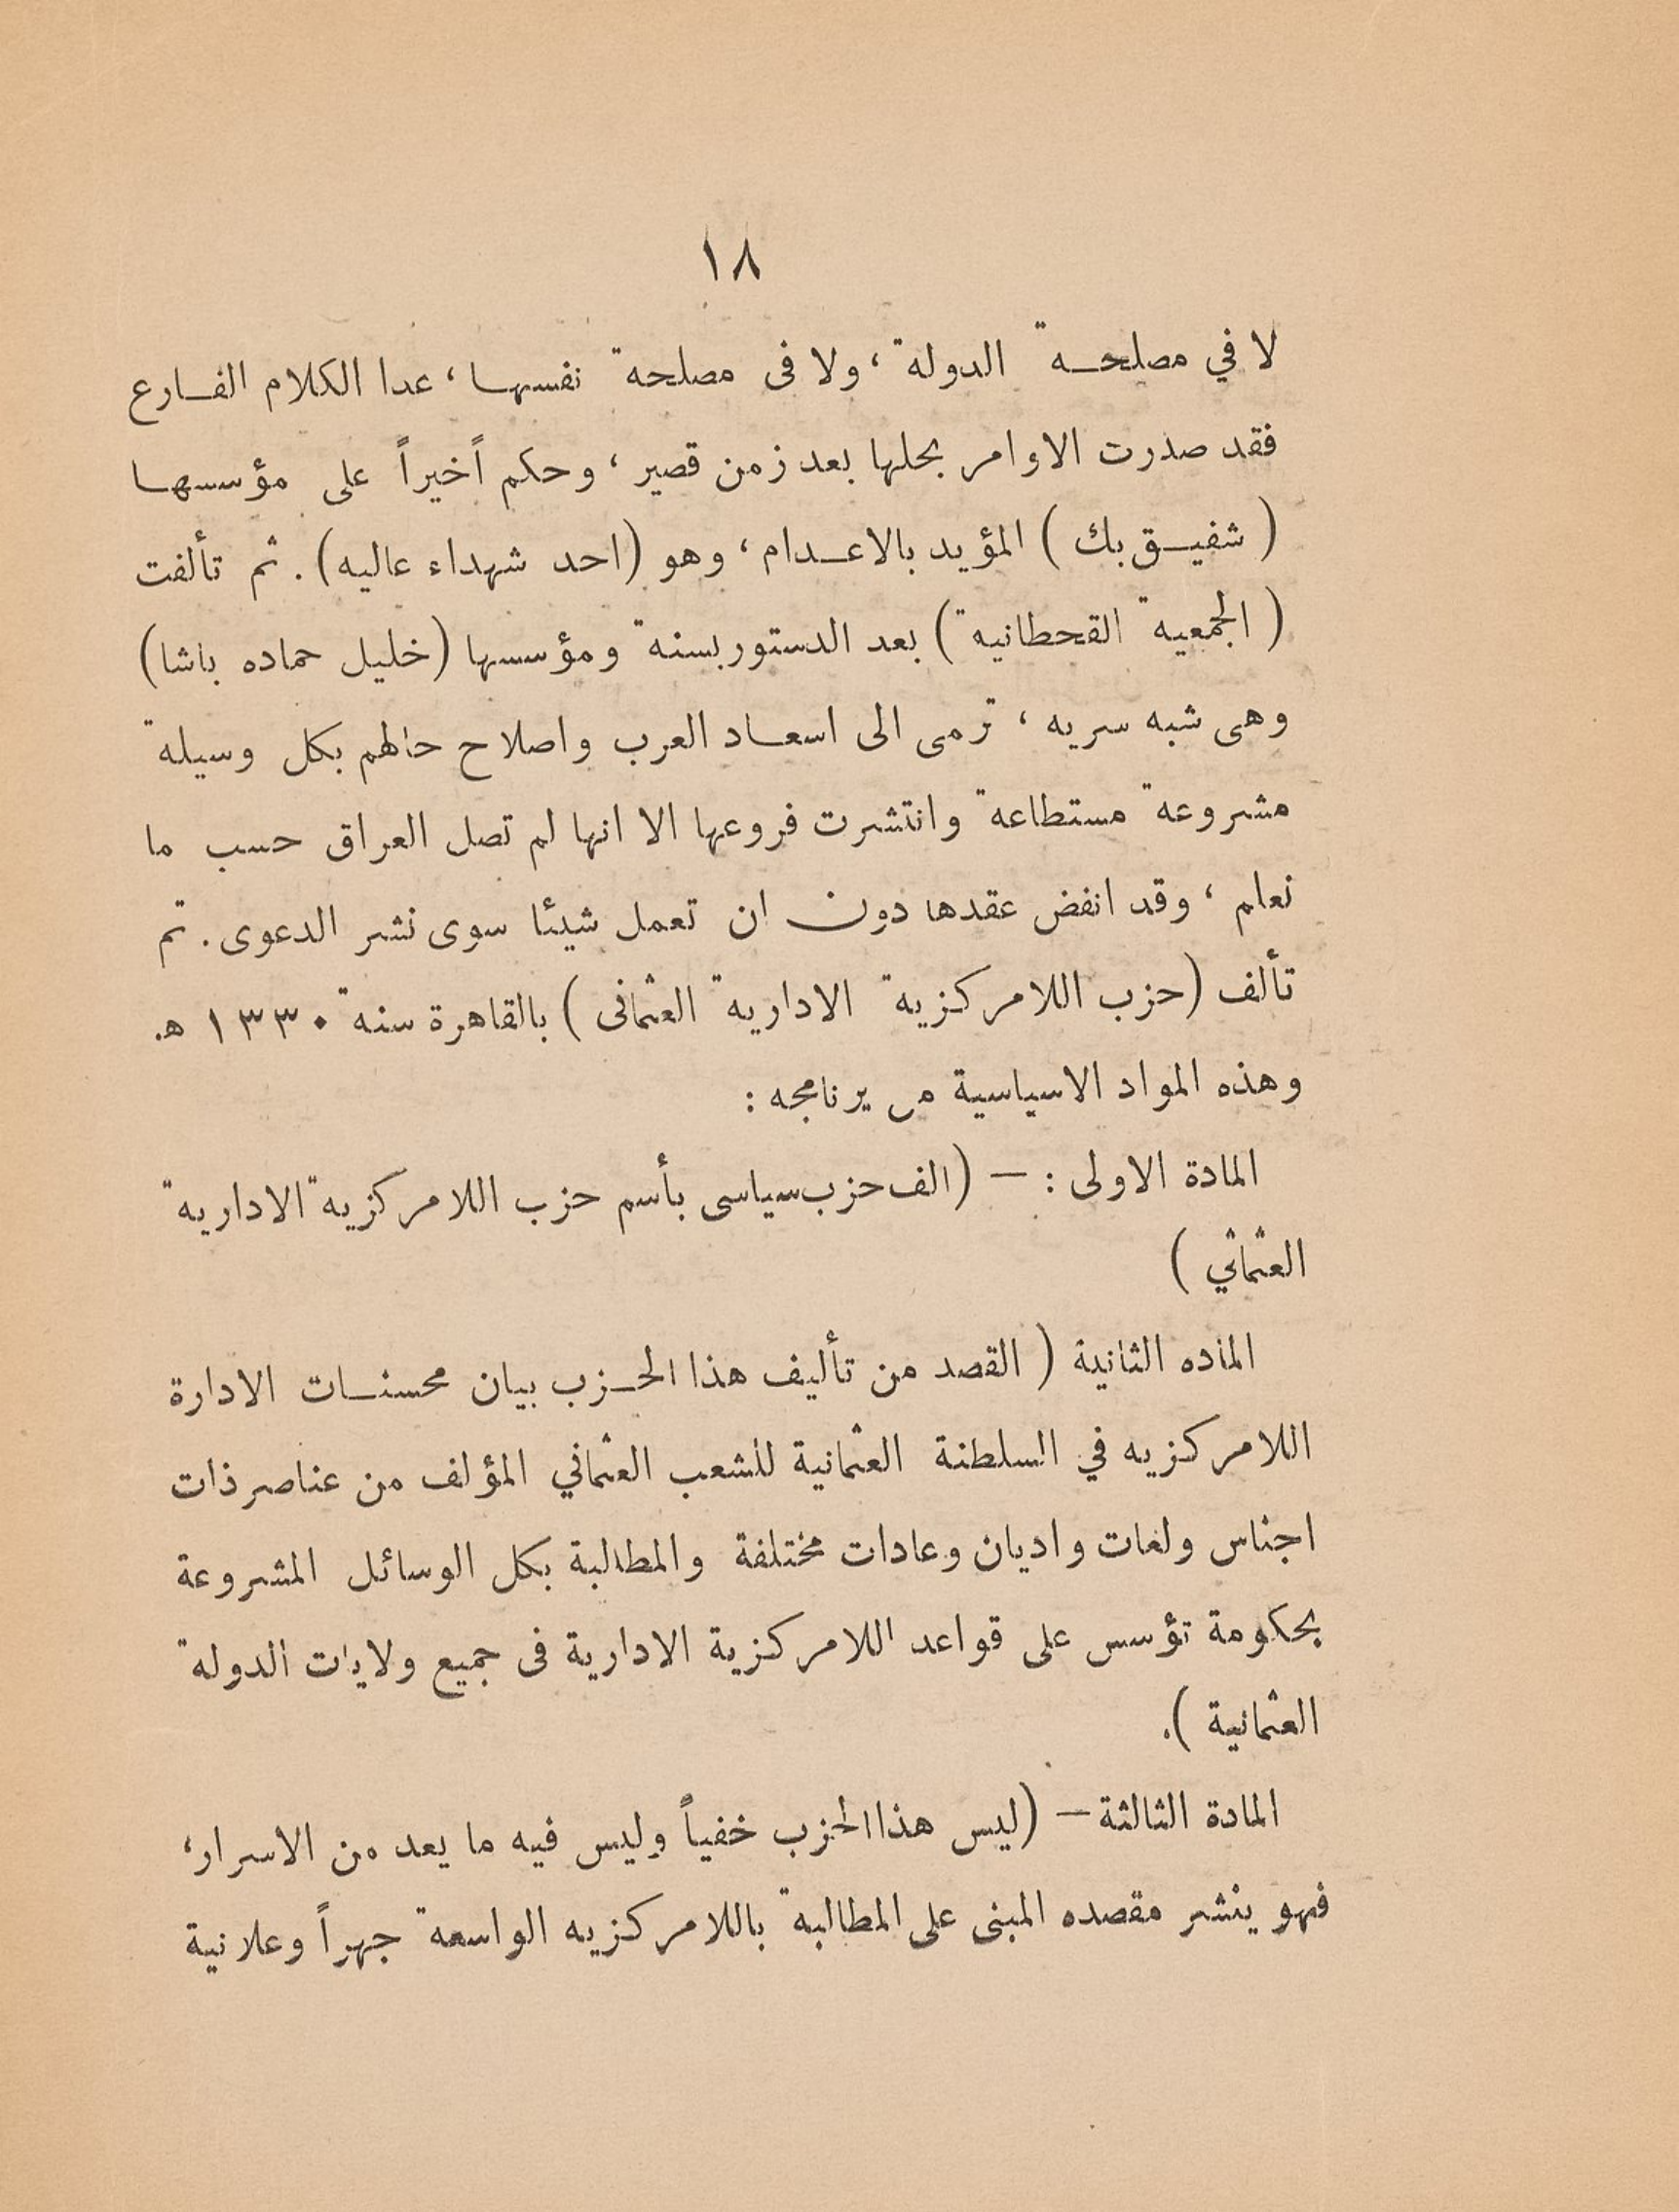 ١٨
لا في مصلحة الدولة ، ولا فى مصلحة نفسها ، عدا الكلام الفارع
فقد صدرت الاوامر بحلها بعد زمن قصير ، وحكم اًخيراً على مؤسسها
( شفيق بك ) المؤيد بالاعدام ، وهو (احد شهداء عاليه) . ثم تألفت
( الجمعية القحطانية ) بعد الدستور بسنة ومؤسسها (خليل حماده باشا)
وهى شبه سريه ، ترمى الى اسعاد العرب واصلاح حالهم بكل وسيلة
مشروعة مستطاعة وانتشرت فروعها الا انها لم تصل العراق حسب ما
نعلم ، وقد انفض عقدها دون ان تعمل شيئا سوى نشر الدعوى . تم
تألف (حزب اللامركزية الادارية العثمانى ) بالقاهرة سنة ١٣٣٠ هـ.
وهذه المواد الاسياسية من برنامجه :
المادة الاولى : — (الف حزب سياسى بأسم حزب اللامركزية الادارية
العثماني )
الماده الثانية ( القصد من تأليف هذا الحزب بيان محسنات الادارة
اللامركزيه في السلطنة العثمانية للشعب العثماني المؤلف من عناصر ذات
اجناس ولغات واديان وعادات مختلفة والمطالبة بكل الوسائل المشروعة
بحكومة تؤسس على قواعد اللامركزية الادارية فى جميع ولايات الدولة
العثمانية ).
المادة الثالثة — (ليس هذا الحزب خفياً وليس فيه ما يعد من الاسرار،
فهو ينشر مقصده المبنى على المطالبة باللامركزيه الواسعة جهراً وعلانية